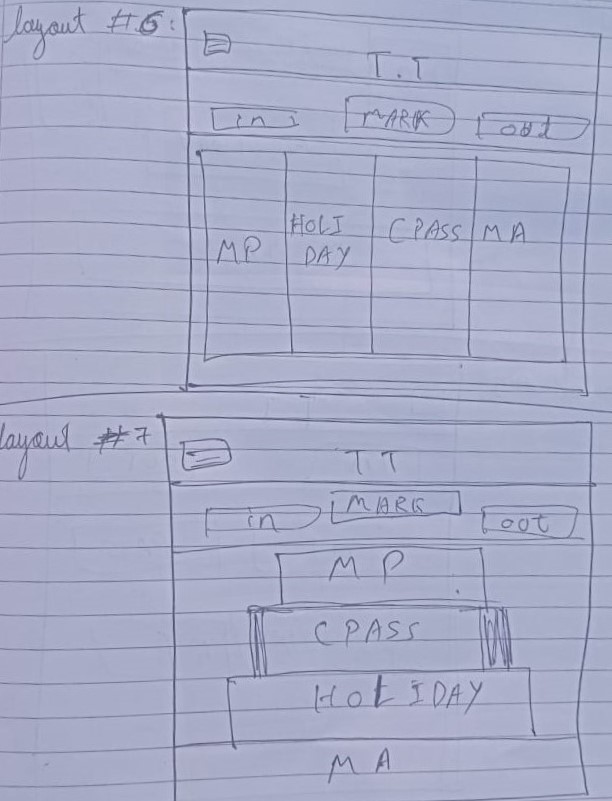 layout #6:
T.T
in MARK out
MP HOLI CPASS MA
DAY
layout #7
TT
in MARK out
MP
CPASS
HOLIDAY
MA